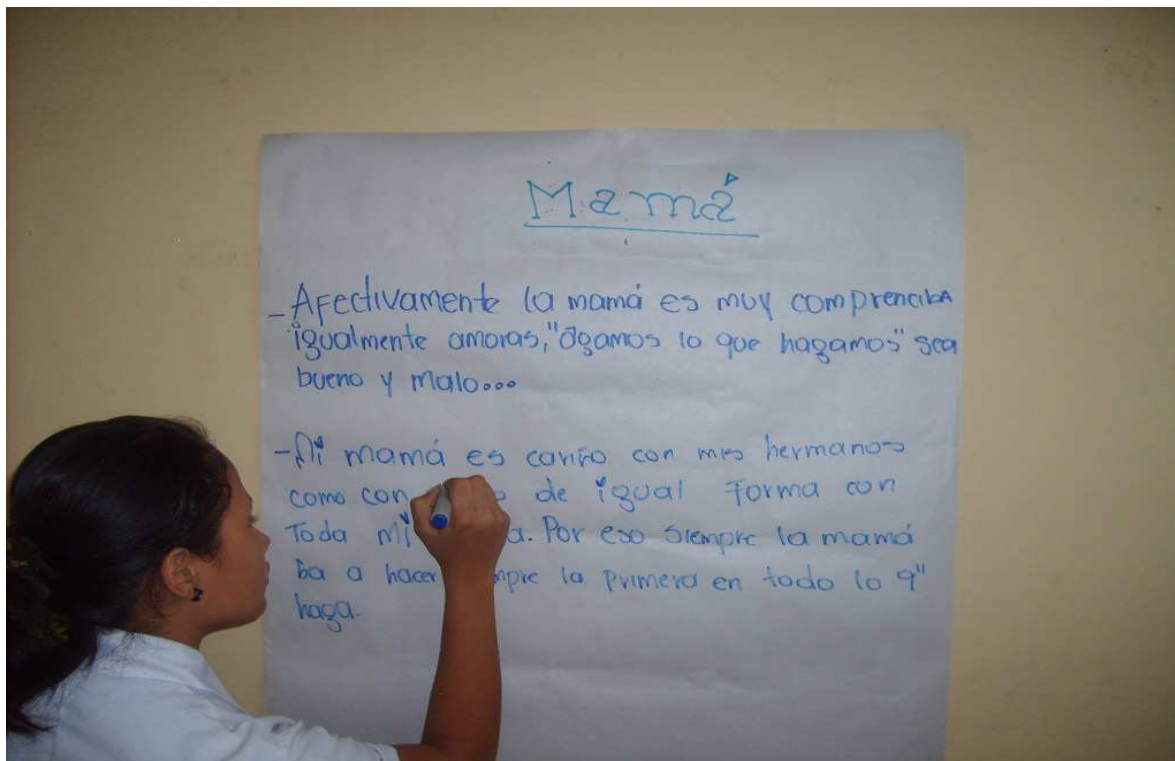 Mamá
- Afectivamente la mamá es muy comprenciba
igualmente amoras, "ògamos lo que hagamos" sea
bueno y malo...
- Mi mamá es cariño con mis hermanos
como con de igual forma con
Toda mi Por eso siempre la mamá
ba a hacer la primera en todo lo q"
haga.